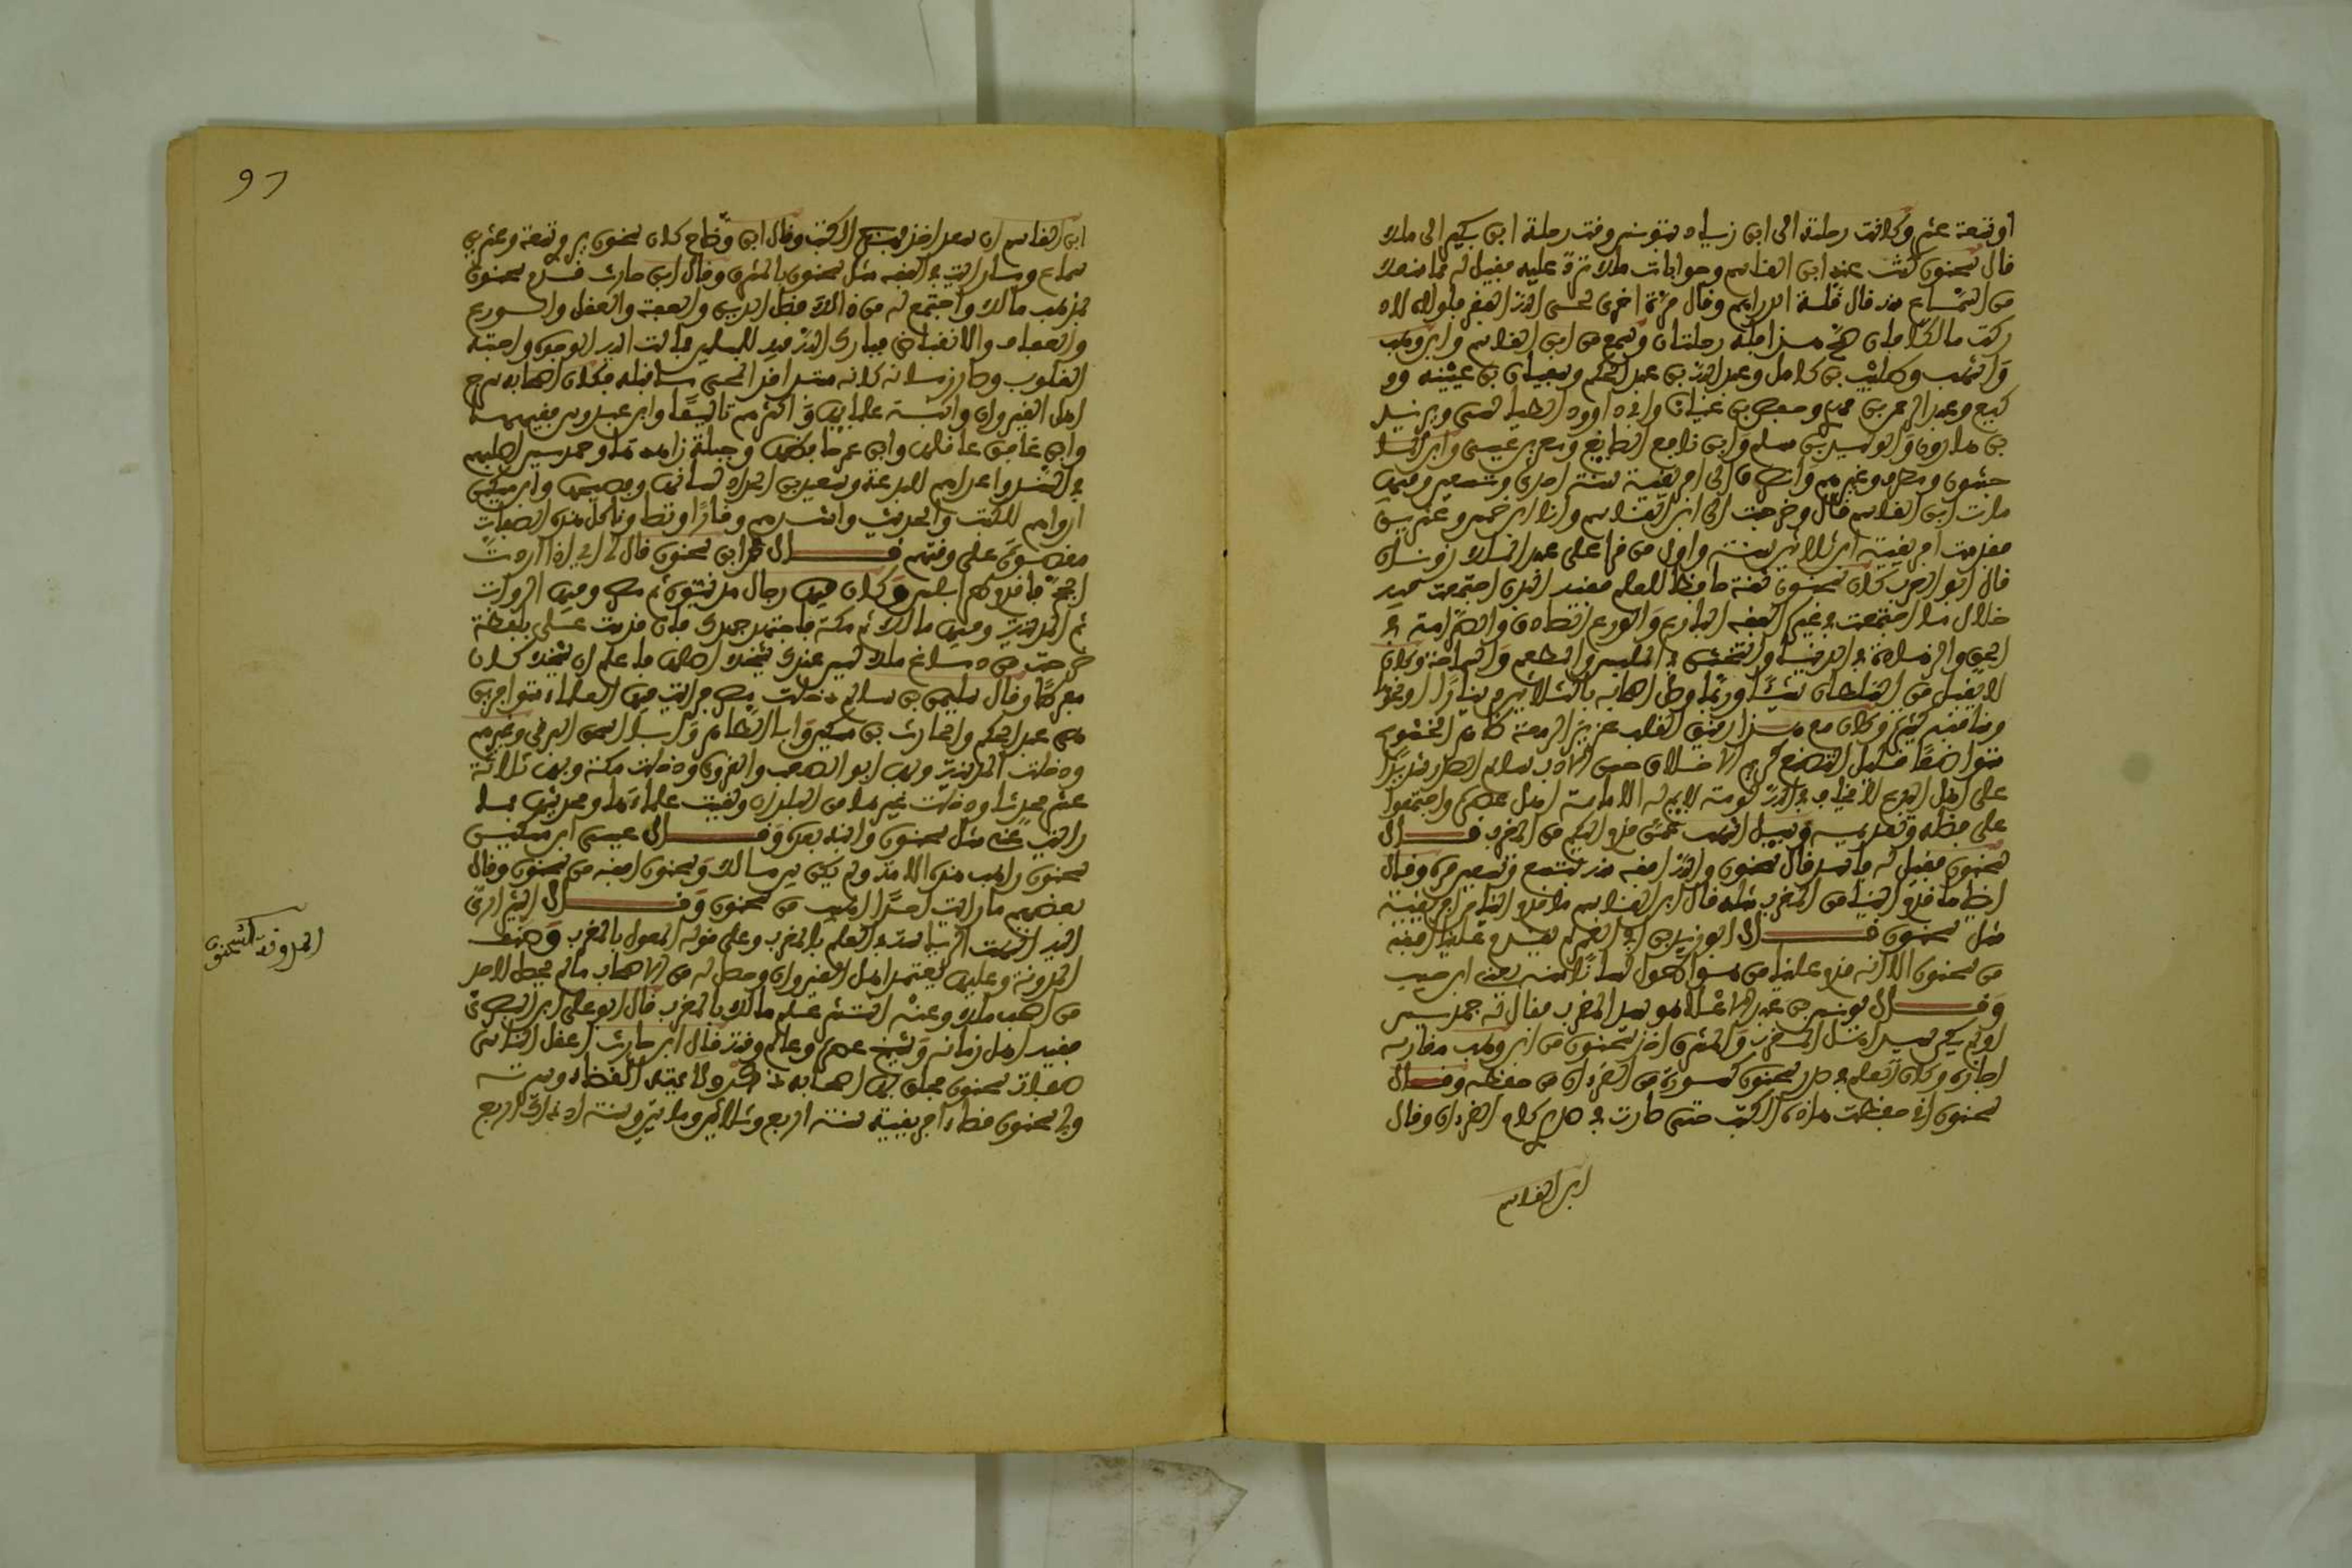 او تسعة عشر وكانت رحلته الى ابن زياد بتونس وقت رحلة ابن بكير الى مالك
قال سحنون كنت عند ابن القاسم وجوابات مالك ترد عليه فقيل له فما منعك
من السماع منه قال قلة الدراهم وقال مرة اخرى لحى الله الفقر فلولاه لاد
ركت مالكا فان صح هذا فله رحلتان وسمع من ابن القاسم وابن وهب
واشهب وطليب بن كامل وعبد الله بن عبد الحكم وسفيان بن عيينة وو
كيع وعبد الرحمن بن مهدي وحفص بن غياث وابي داوود الطيالسي ويزيد
بن هارون والوليد بن مسلم وابن نافع الصايغ ومعن بن عيسى وابن الما
جشون ومطرف وغيرهم وانصرف الى افريقية سنة احدى وتسعين وفيها
مات ابن القاسم قال وخرجت الى ابن القاسم وانا ابن خمس وعشرين
فقدمت افريقية ابن ثلاثين سنة واول من قرا علي عبد الملك زونان
قال ابو العرب كان سحنون ثقة حافظا للعلم فقيه البدن اجتمعت فيه
خلال ما اجتمعت في غيره الفقه البارع والورع الصادق والصرامة في
الحق والزهادة في الدنيا والتخشن في الملبس والمطعم والسماحة وكان
لا يقبل من السلطان شيئا وربما وصل اصحابه بالثلاثين دينارا او نحوها
ومناقبه كثيرة وكان مع هذا رقيق القلب غزير الدمعة ظاهر الخشوع
متواضعا قليل التصنع كريم الاخلاق حسن الادب سالم الصدر شديدا
على اهل البدع لا يخاف في الله لومة لايم له الامامة اهل عصره واجتمعوا
على فضله وتقديمه وسيل اشهب عمن قدم اليكم من المغرب قال
سحنون فقيل له فاسد قال سحنون والله افقه منه بتسع وتسعين مرة وقال
ايضا ما قدم الينا من المغرب مثله قال ابن القاسم ما قدم الينا من افريقية
مثل سحنون قال ابو زيد بن ابي الغمر لم يقدم علينا افقه
من سحنون الا انه قدم علينا من هو اطول لسانا منه يعني ابن حبيب
وقال يونس بن عبد الاعلى هو سيد المغرب فقال له حمديس
اولم يكن سيد اهل المغرب والمشرق اخذ سحنون من ابن وهب مغازيه
اجازة وكان العلم في صدر سحنون كسورة من القرءان من حفظه وقال
سحنون اني حفظت هذه الكتب حتى صارت في صدري كام القرءان وقال
ابن القاسم
ابن القاسم ان سعد احد بهذه الكتب وقال ابن وضاح كان سحنون يروي تسعة وعشرين
سماع وما رايت في الفقه مثل سحنون بالمشرق وقال ابن حارث قدم سحنون
بمذهب مالك واجتمع له من ذالك فضل الدين والعفة والعقل والورع
والعفاف والانقباض فبارك الله فيه للمسلمين فمالت اليه الوجوه واحبته
القلوب وصار زمانه كانه مبتدا قد انمحى ما قبله فكان اصحابه سرج
اهل القيروان وابنه عالمها واكثرهم تاليفا وابن عبدوس فقيهها
وابن غافق عاقلها وابن عمر حافظها وجبلة زاهدها وحمديس اصلبهم
في السنة واعداهم للبدعة وسعيد بن الحداد لسانها وفصيحها وابن مسكين
ارواهم للكتب والحديث واشدهم وقارا وتصاونا كل هذه الصفات
مقصورة على وقتهم قال محمد ابن سحنون قال لي ابي اذا اردت
الحج فاقدم طرابلس وكان فيها رجال مدنيون ثم مصر وفيها الرواة
ثم المدينة وفيها مالك ثم مكة فاجتهد جهدك فان قدمت علي بلفظة
خرجت من دماغ مالك ليس عند شيخك اصلها فاعلم ان شيخك كان
مفرطا وقال سليمن بن سالم دخلت مصر فرايت فيها العلماء متوافرين
بني عبد الحكم والحارث بن مسكين وابا الطاهر وابا اسحق البرقي وغيرهم
ودخلت المدينة وبها ابو المصعب والفروي ودخلت مكة وبها ثلاثة
عشر محدثا ودخلت غيرها من البلدان ولقيت علماءها ومحدثيها فما
رايت عيني مثل سحنون وابنه بعده وقال عيسى ابن مسكين
سحنون راهب هذه الامة ولم يكن بين مالك وسحنون افقه من سحنون وقال
بعضهم ما رايت احدا اهيب من سحنون وقال الشيرازي
اليه انتهت الرياسة في العلم بالمغرب وعلى قوله المعول بالمغرب وصنف
المدونة وعليها يعتمد اهل القيروان وحصل له من الاصحاب ما لم يحصل لاحد
من اصحاب مالك وعنه انتشر علم مالك بالمغرب قال ابو علي ابن البصري
فقيه اهل زمانه وشيخ عصره وعالم وقته قال ابن حارث اعقل الناس
صحابا سحنون
ولي سحنون قضاء افريقية سنة اربع وثلاثين ومايتين وسنه اذ ذاك اربع
المدونة لسحنون